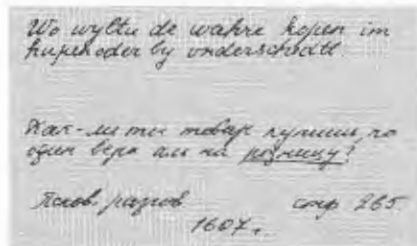 Wo wyltu de wahre kopen im
hupen oder by underschedtl.
Как-ли ты товар купишь по
один верх али на розницу?
Псков. разгов. стр 265.
1607 г.